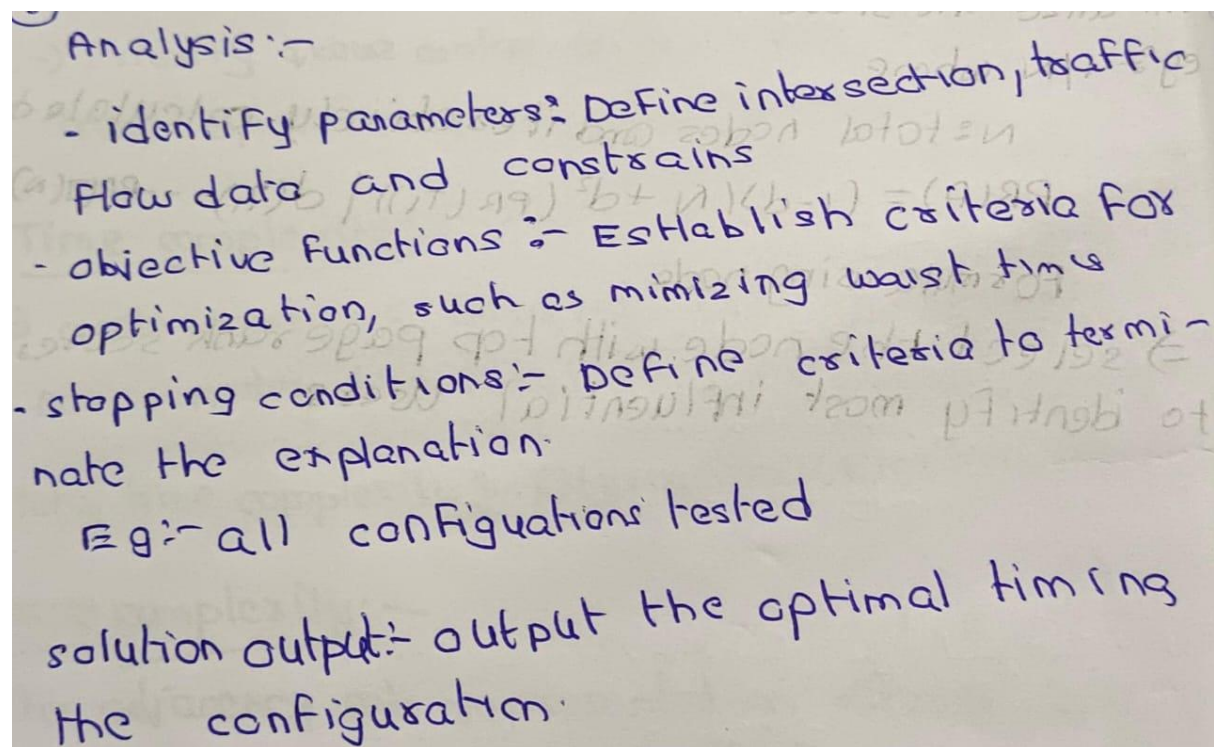 Analysis :-
- identify parameters :- Define intersection, traffic
flow data and constrains
- objective functions :- Establish criteria for
optimization, such as mimizing waist time
- stopping conditions :- Define criteria to termi-
nate the explanation.
Eg :- all configuations tested
solution output :- output the optimal timing
the configuration.